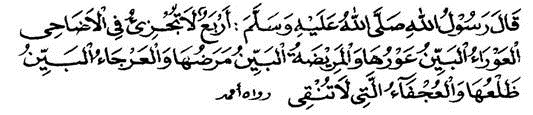 قَالَ رَسُوْلُ اللهِ صَلَّى اللهُ عَلَيْهِ وَسَلَّمَ : أَرْبَعٌ لَاتُجْزِئُ فِى الْاَضَاحِى
الْعَوْرَاءُ الْبَيِّنُ عَوَرُهَا وَالْمَرِيْضَةُ الْبَيِّنُ مَرَضُهَا وَالْعَرْجَاءُ الْبَيِّنُ
ظَلْعُهَا وَالْعَجْفَآءُ الَّتِى لَا تُنْقِى رواه أحمد